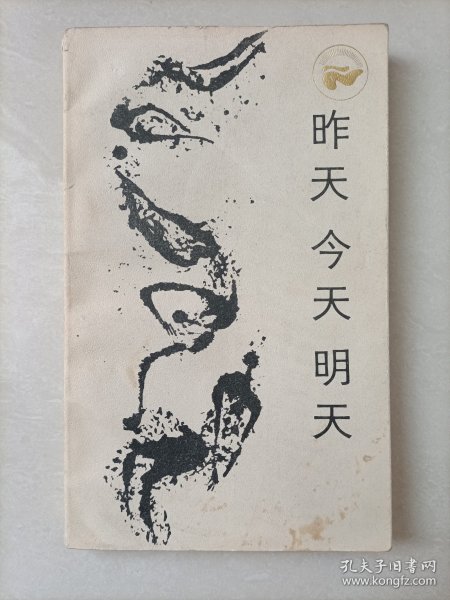 昨天 今天 明天
孔夫子旧书网
www.kongfz.com